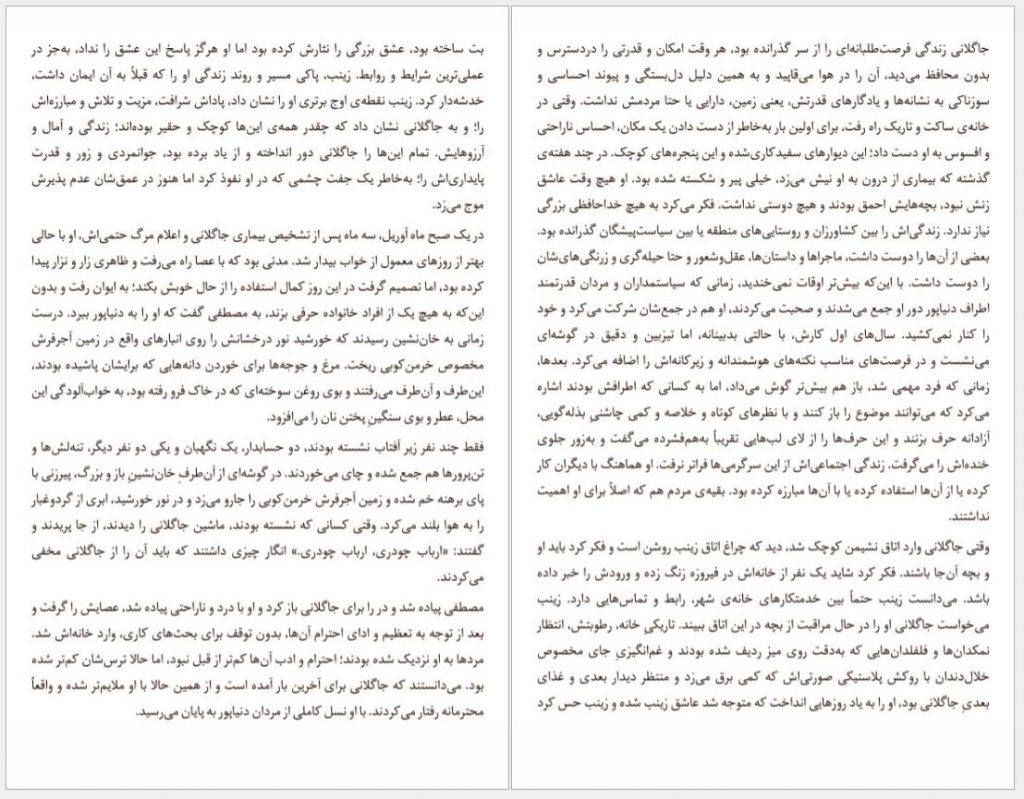 جاگلانی زندگی فرصت‌طلبانه‌ای را از سر گذرانده بود، هر وقت امکان و قدرتی را دردسترس و
بدون محافظ می‌دید، آن را در هوا می‌قاپید و به همین دلیل دل‌بستگی و پیوند احساسی و
سوزناکی به نشانه‌ها و یادگارهای قدرتش، یعنی زمین، دارایی یا حتا مردمش نداشت. وقتی در
خانه‌ی ساکت و تاریک راه رفت، برای اولین بار به‌خاطر از دست دادن یک مکان، احساس ناراحتی
و افسوس به او دست داد؛ این دیوارهای سفیدکاری‌شده و این پنجره‌های کوچک. در چند هفته‌ی
گذشته که بیماری از درون به او نیش می‌زد، خیلی پیر و شکسته شده بود. او هیچ وقت عاشق
زنش نبود، بچه‌هایش احمق بودند و هیچ دوستی نداشت. فکر می‌کرد به هیچ خداحافظی بزرگی
نیاز ندارد. زندگی‌اش را بین کشاورزان و روستایی‌های منطقه یا بین سیاست‌پیشگان گذرانده بود.
بعضی از آن‌ها را دوست داشت، ماجراها و داستان‌ها، عقل‌وشعور و حتا حیله‌گری و زرنگی‌های‌شان
را دوست داشت. با این‌که بیش‌تر اوقات نمی‌خندید، زمانی که سیاستمداران و مردان قدرتمند
اطراف دنیاپور دور او جمع می‌شدند و صحبت می‌کردند، او هم در جمع‌شان شرکت می‌کرد و خود
را کنار نمی‌کشید. سال‌های اول کارش، با حالتی بدبینانه، اما تیزبین و دقیق در گوشه‌ای
می‌نشست و در فرصت‌های مناسب نکته‌های هوشمندانه و زیرکانه‌اش را اضافه می‌کرد. بعدها،
زمانی که فرد مهمی شد، باز هم بیش‌تر گوش می‌داد، اما به کسانی که اطرافش بودند اشاره
می‌کرد که می‌توانند موضوع را باز کنند و با نظرهای کوتاه و خلاصه و کمی چاشنیِ بذله‌گویی،
آزادانه حرف بزنند و این حرف‌ها را از لای لب‌هایی تقریباً به‌هم‌فشرده می‌گفت و به‌زور جلوی
خنده‌اش را می‌گرفت. زندگی اجتماعی‌اش از این سرگرمی‌ها فراتر نرفت. او هماهنگ با دیگران کار
کرده یا از آن‌ها استفاده کرده یا با آن‌ها مبارزه کرده بود. بقیه‌ی مردم هم که اصلاً برای او اهمیت
نداشتند.
وقتی جاگلانی وارد اتاق نشیمن کوچک شد، دید که چراغ اتاق زینب روشن است و فکر کرد باید او
و بچه آن‌جا باشند. فکر کرد شاید یک نفر از خانه‌اش در فیروزه زنگ زده و ورودش را خبر داده
باشد. می‌دانست زینب حتماً بین خدمتکارهای خانه‌ی شهر، رابط و تماس‌هایی دارد. زینب
می‌خواست جاگلانی او را در حال مراقبت از بچه در این اتاق ببیند. تاریکیِ خانه، رطوبتش، انتظار
نمکدان‌ها و فلفلدان‌هایی که به‌دقت روی میز ردیف شده بودند و غم‌انگیزیِ جای مخصوص
خلال‌دندان با روکش پلاستیکی صورتی‌اش که کمی برق می‌زد و منتظر دیدار بعدی و غذای
بعدیِ جاگلانی بود، او را به یاد روزهایی انداخت که متوجه شد عاشق زینب شده و زینب حس کرد
بت ساخته بود، عشق بزرگی را نثارش کرده بود اما او هرگز پاسخ این عشق را نداد، به‌جز در
عملی‌ترین شرایط و روابط. زینب، پاکی مسیر و روند زندگی او را که قبلاً به آن ایمان داشت،
خدشه‌دار کرد. زینب نقطه‌ی اوج برتری او را نشان داد، پاداش شرافت، مزیت و تلاش و مبارزه‌اش
را؛ و به جاگلانی نشان داد که چقدر همه‌ی این‌ها کوچک و حقیر بوده‌اند؛ زندگی و آمال و
آرزوهایش. تمام این‌ها را جاگلانی دور انداخته و از یاد برده بود، جوانمردی و زور و قدرت
پایداری‌اش را؛ به‌خاطر یک جفت چشمی که در او نفوذ کرد اما هنوز در عمق‌شان عدم پذیرش
موج می‌زد.
در یک صبح ماه آوریل، سه ماه پس از تشخیص بیماری جاگلانی و اعلام مرگ حتمی‌اش، او با حالی
بهتر از روزهای معمول از خواب بیدار شد. مدتی بود که با عصا راه می‌رفت و ظاهری زار و نزار پیدا
کرده بود، اما تصمیم گرفت در این روز کمال استفاده را از حال خوبش بکند؛ به ایوان رفت و بدون
این‌که به هیچ یک از افراد خانواده حرفی بزند، به مصطفی گفت که او را به دنیاپور ببرد. درست
زمانی به خان‌نشین رسیدند که خورشید نور درخشانش را روی انبارهای واقع در زمین آجرفرش
مخصوص خرمن‌کوبی ریخت. مرغ و جوجه‌ها برای خوردن دانه‌هایی که برایشان پاشیده بودند،
این‌طرف و آن‌طرف می‌رفتند و بوی روغن سوخته‌ای که در خاک فرو رفته بود، به خواب‌آلودگی این
محل، عطر و بوی سنگینِ پختن نان را می‌افزود.
فقط چند نفر زیر آفتاب نشسته بودند، دو حسابدار، یک نگهبان و یکی دو نفر دیگر، تنه‌لش‌ها و
تن‌پرورها هم جمع شده و چای می‌خوردند. در گوشه‌ای از آن‌طرفِ خان‌نشینِ باز و بزرگ، پیرزنی با
پای برهنه خم شده و زمین آجرفرش خرمن‌کوبی را جارو می‌زد و در نور خورشید، ابری از گردوغبار
را به هوا بلند می‌کرد. وقتی کسانی که نشسته بودند، ماشین جاگلانی را دیدند، از جا پریدند و
گفتند: «ارباب چودری، ارباب چودری.» انگار چیزی داشتند که باید آن را از جاگلانی مخفی
می‌کردند.
مصطفی پیاده شد و در را برای جاگلانی باز کرد و او با درد و ناراحتی پیاده شد، عصایش را گرفت و
بعد از توجه به تعظیم و ادای احترام آن‌ها، بدون توقف برای بحث‌های کاری، وارد خانه‌اش شد.
مردها به او نزدیک شده بودند؛ احترام و ادب آن‌ها کم‌تر از قبل نبود، اما حالا ترس‌شان کم‌تر شده
بود. می‌دانستند که جاگلانی برای آخرین بار آمده است و از همین حالا با او ملایم‌تر شده و واقعاً
محترمانه رفتار می‌کردند. با او نسل کاملی از مردان دنیاپور به پایان می‌رسید.